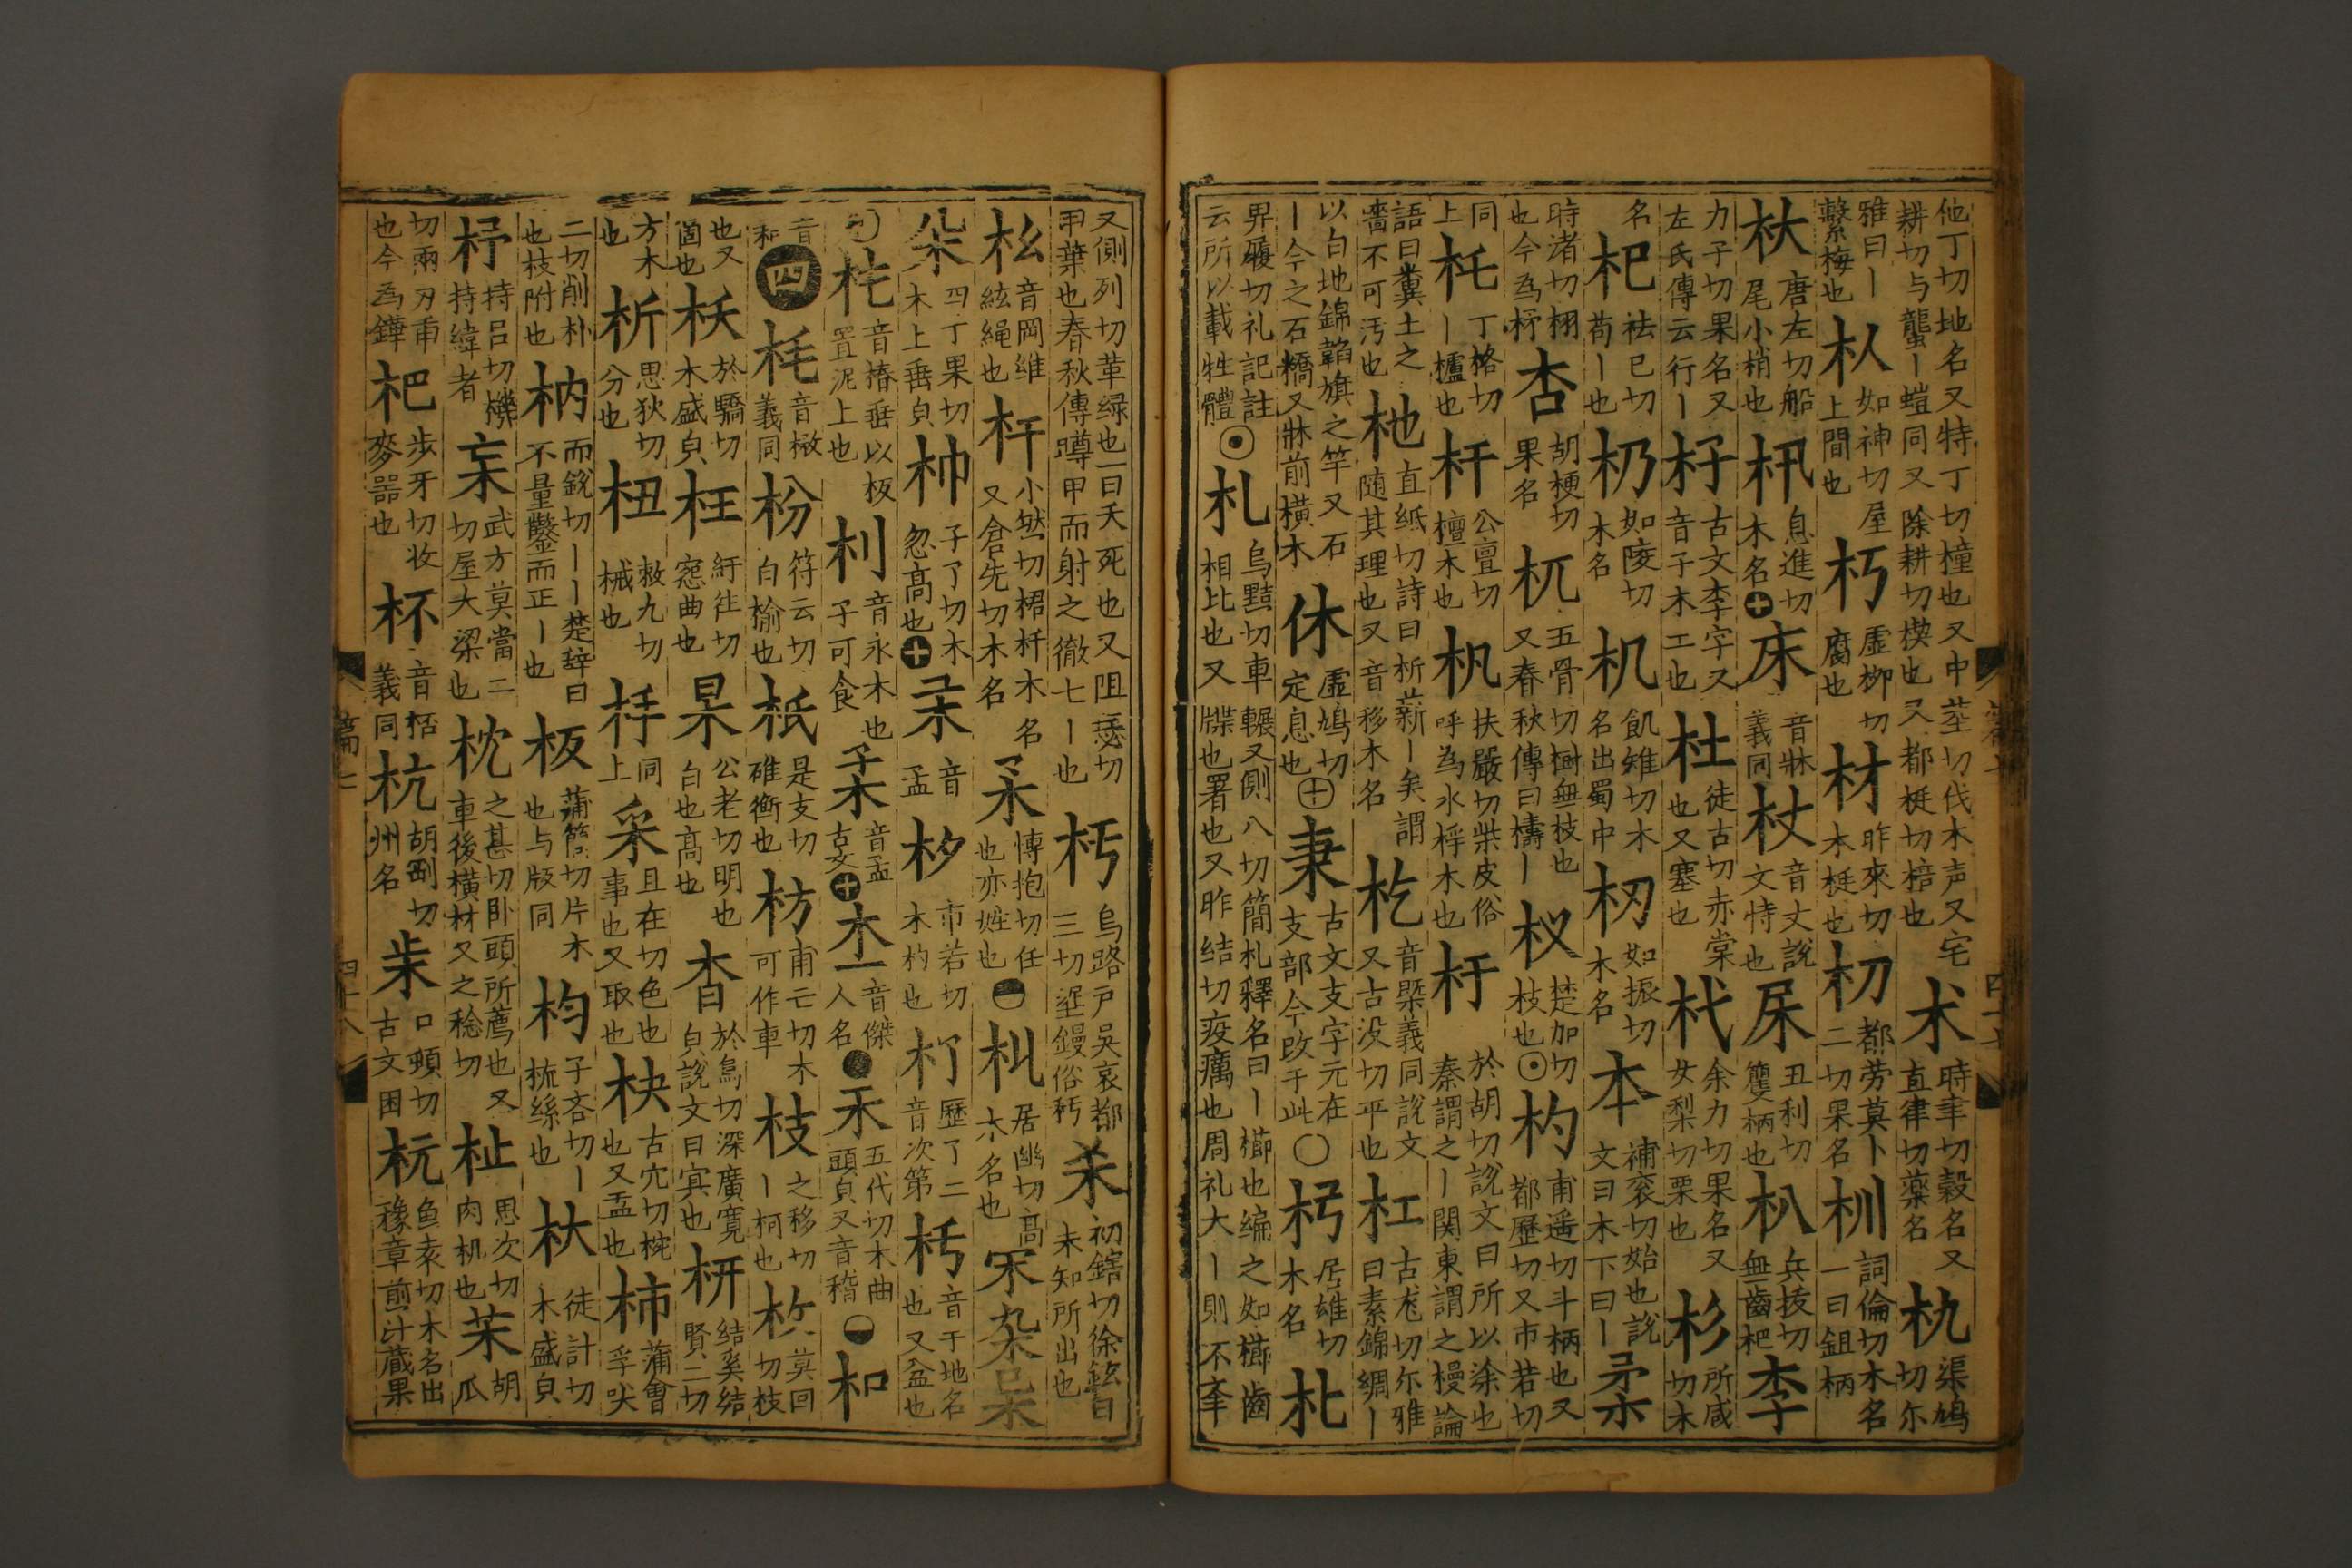 他丁切地名又特丁切橦也又中莖切伐木声又宅耕切与䖟丨螘同又除耕切楔也又都梃切棓也朮時聿切穀名又直律切藥名朹渠鳩切尔
雅曰丨繫梅也杁如神切屋上間也朽虛柳切腐也材昨來切木梃也朷都劳莫卜二切果名杊詞倫切木名一曰鉏柄
杕唐左切船尾小梢也𣏕息進切木名床音牀義同杖音丈說文恃也杘丑利切籰柄也朳兵拔切無齒杷李
力子切果名又左氏傳云行丨杍古文李字又音子木工也杜徒古切赤棠也又塞也杙余力切果名又女梨切栗也杉所咸切木
名杞祛已切苟丨也杤如陵切木名机飢雉切木名出蜀中杒如振切木名本補衮切始也說文曰木下曰丨柔
時渚切栩也今為杼杏胡梗切果名杌五骨切樹無枝也又春秋傳曰檮丨杈楚加切枝也杓甫遥切斗柄也又都歷切又市若切
同上杔丁格切丨櫨也杆公亶切檀木也杋扶嚴切柴皮俗呼為水桴木也杅於胡切說文曰所以涂也秦謂之丨関東謂之槾論
語曰糞土之墻不可汚也杝直紙切詩曰析薪丨矣謂随其理也又音移木名杚音槩義同說文又古没切平也杠古尨切尔雅曰素錦綢丨
以白地錦韜旗之竿又石丨今之石橋又牀前橫木休虛鳩切定息也秉古文支字元在支部今改于此杛居雄切木名札
畀履切礼記註云所以載牲體札烏黠切車輾又側八切簡札釋名曰丨櫛也编之如櫛齒相比也又牒也署也又昨结切疫癘也周礼大丨則不夆
又側列切葦緑也一曰夭死也又阻瑟切甲葉也春秋傳蹲甲而射之徹七丨也杇烏路戸吴哀都三切逕鏝俗杇杀初鎋切徐鉉曰未知所出也
杺音岡維絃繩也杄小㷊切桾杄木名又倉先切木名保愽抱切任也亦姓也朻居幽切高木名也宋杂呆
朵四丁果切木上垂皃𣏋子了切木忽高也𣏌音孟杦市若切木杓也杅歷了二音次第杇音于地名也又盆也
杔音椿垂以板置泥上也𣏎音永木也子可食𣏍音孟古文木音傑人名禾五代切木曲頭皃又音稽和
音和四枆音楸義同枌符云切白榆也柢是支切碓衡也枋甫亡切木可作車枝之移切丨柯也枚莫回切枝
也又箇也枖於驕切木盛皃枉紆往切宽曲也杲公老切明也白也高也杳於鳥切深廣寬皃說文曰㝠也枅结奚结賢二切
方木也析思狄切分也杻敕九切械也杽同上采且在切色也事也又取也枎古穴切椀也又盂也柿蒲會孚吠
二切削朴也枝附也枘而銳切丨丨楚辞曰不量鑿而正丨也板蒲簡切片木也与版同枃子吝切丨梳絲也杕徒計切木盛皃
杼持吕切機持緯者杗武方莫當二切屋大梁也枕之甚切卧頭所薦也又車後橫材又之稔切杫思次切肉机也𣏗胡瓜
切兩刃臿也今為鏵杷步牙切收麥噐也杯音桮義同杭胡㓻切州名𣏔口頓切古文困杬魚袁切木名出豫章煎汁藏果